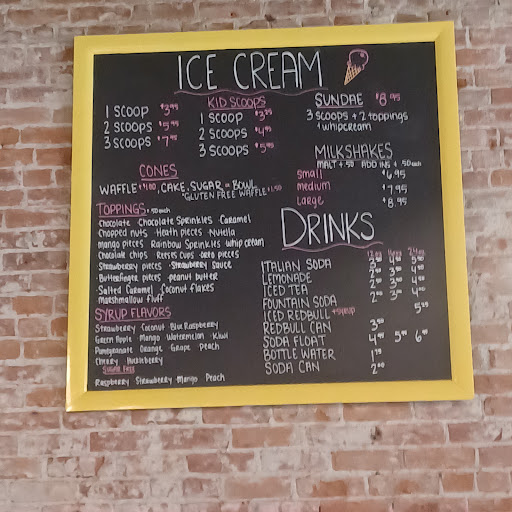 ICE CREAM
1 SCOOP $3.95
2 SCOOPS $5.95
3 SCOOPS $7.95
KID SCOOPS
1 SCOOP $3.25
2 SCOOPS $4.95
3 SCOOPS $5.95
SUNDAE $8.95
3 SCOOPS + 2 toppings
+ whipcream
MILKSHAKES
MALT + .50 ADD INS + .50 each
small $6.95
medium $7.95
large $8.95
CONES
WAFFLE + $1.00, CAKE, SUGAR = BOWL
*GLUTEN FREE WAFFLE + 1.50
TOPPINGS + .50 each
Chocolate Chocolate Sprinkles Caramel
Chopped nuts Heath pieces Nutella
mango pieces Rainbow Sprinkles whip cream
Chocolate chips Reeses Cups oreo pieces
Strawberry pieces Strawberry Sauce
Butterfinger pieces peanut butter
Salted Caramel Coconut flakes
marshmallow fluff
SYRUP FLAVORS
Strawberry Coconut Blue Raspberry
Green Apple Mango Watermelon Kiwi
Pomegranate Orange Grape Peach
Cherry Huckleberry
SUGAR FREE
Raspberry Strawberry Mango Peach
DRINKS
12oz 16oz 24oz
ITALIAN SODA
LEMONADE
ICED TEA
FOUNTAIN SODA
ICED REDBULL + syrup
REDBULL CAN
SODA FLOAT
BOTTLE WATER
SODA CAN